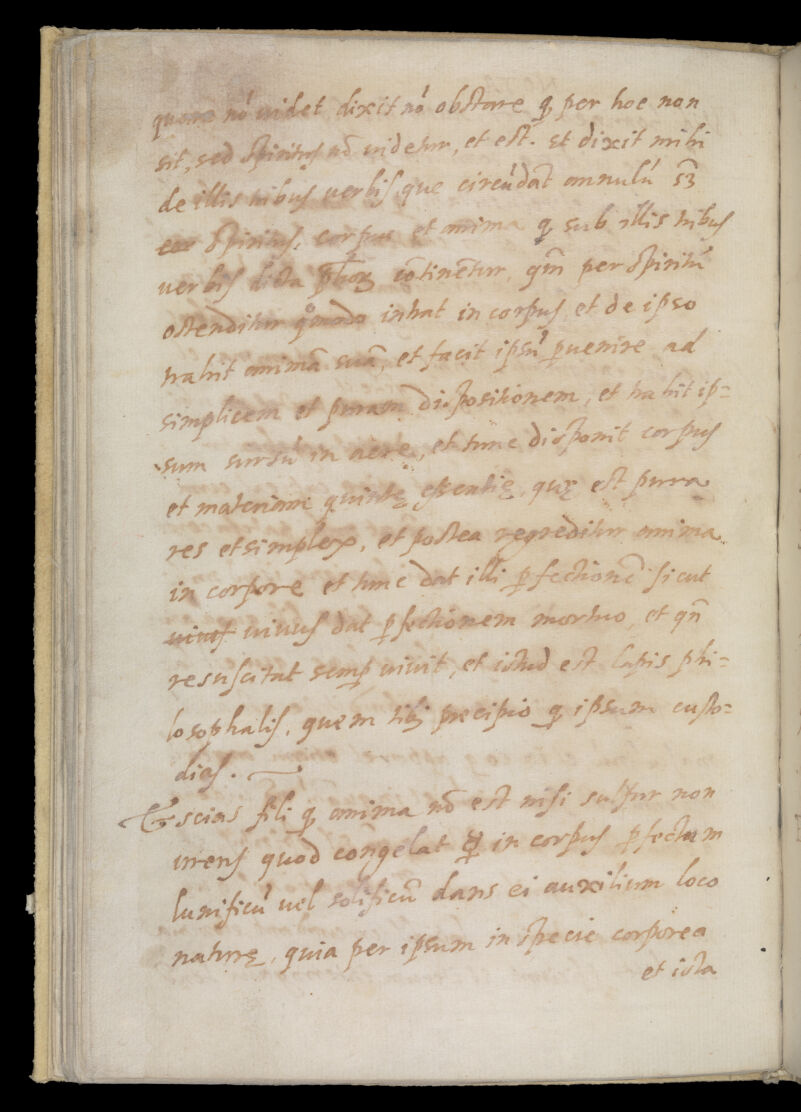 quare nō uidet dixit nō obstare q̨ per hoc non
sit, sed spiritus nō uidetur, et est. et dixit mihi
de illis tribus uerbis que circūdāt annulū
spiritus, corpus et anima q̨ sub illis tribus
uerbis dicta cōtinētur, qm̄ per spiritū
ostenditur quōmodo intrat in corpus et de ipso
trahit animā suā, et facit ipsū puenire ad
simplicem et puram dispositionem, et trahit ip=
sum sursū in aere, et tunc disponit corpus
et materiam quintę essentię, quę est pura
res et simplex, et postea regreditur anima
in corpore et tunc dat illi pfectionē sicut
uiuus dat pfectionem mortuo, et qn̄
resuscitat semp uiuit, et istud est lapis phi=
losophalis, quem tibi precipio q̨ ipsum custo=
dias.
Et scias fili q̨ anima nō est nisi sulfur non
urens quod congelat ☿ in corpus pfectum
lunificū uel solificū dans ei auxilium loco
naturę, quia per ipsum in specie corporea
et ista